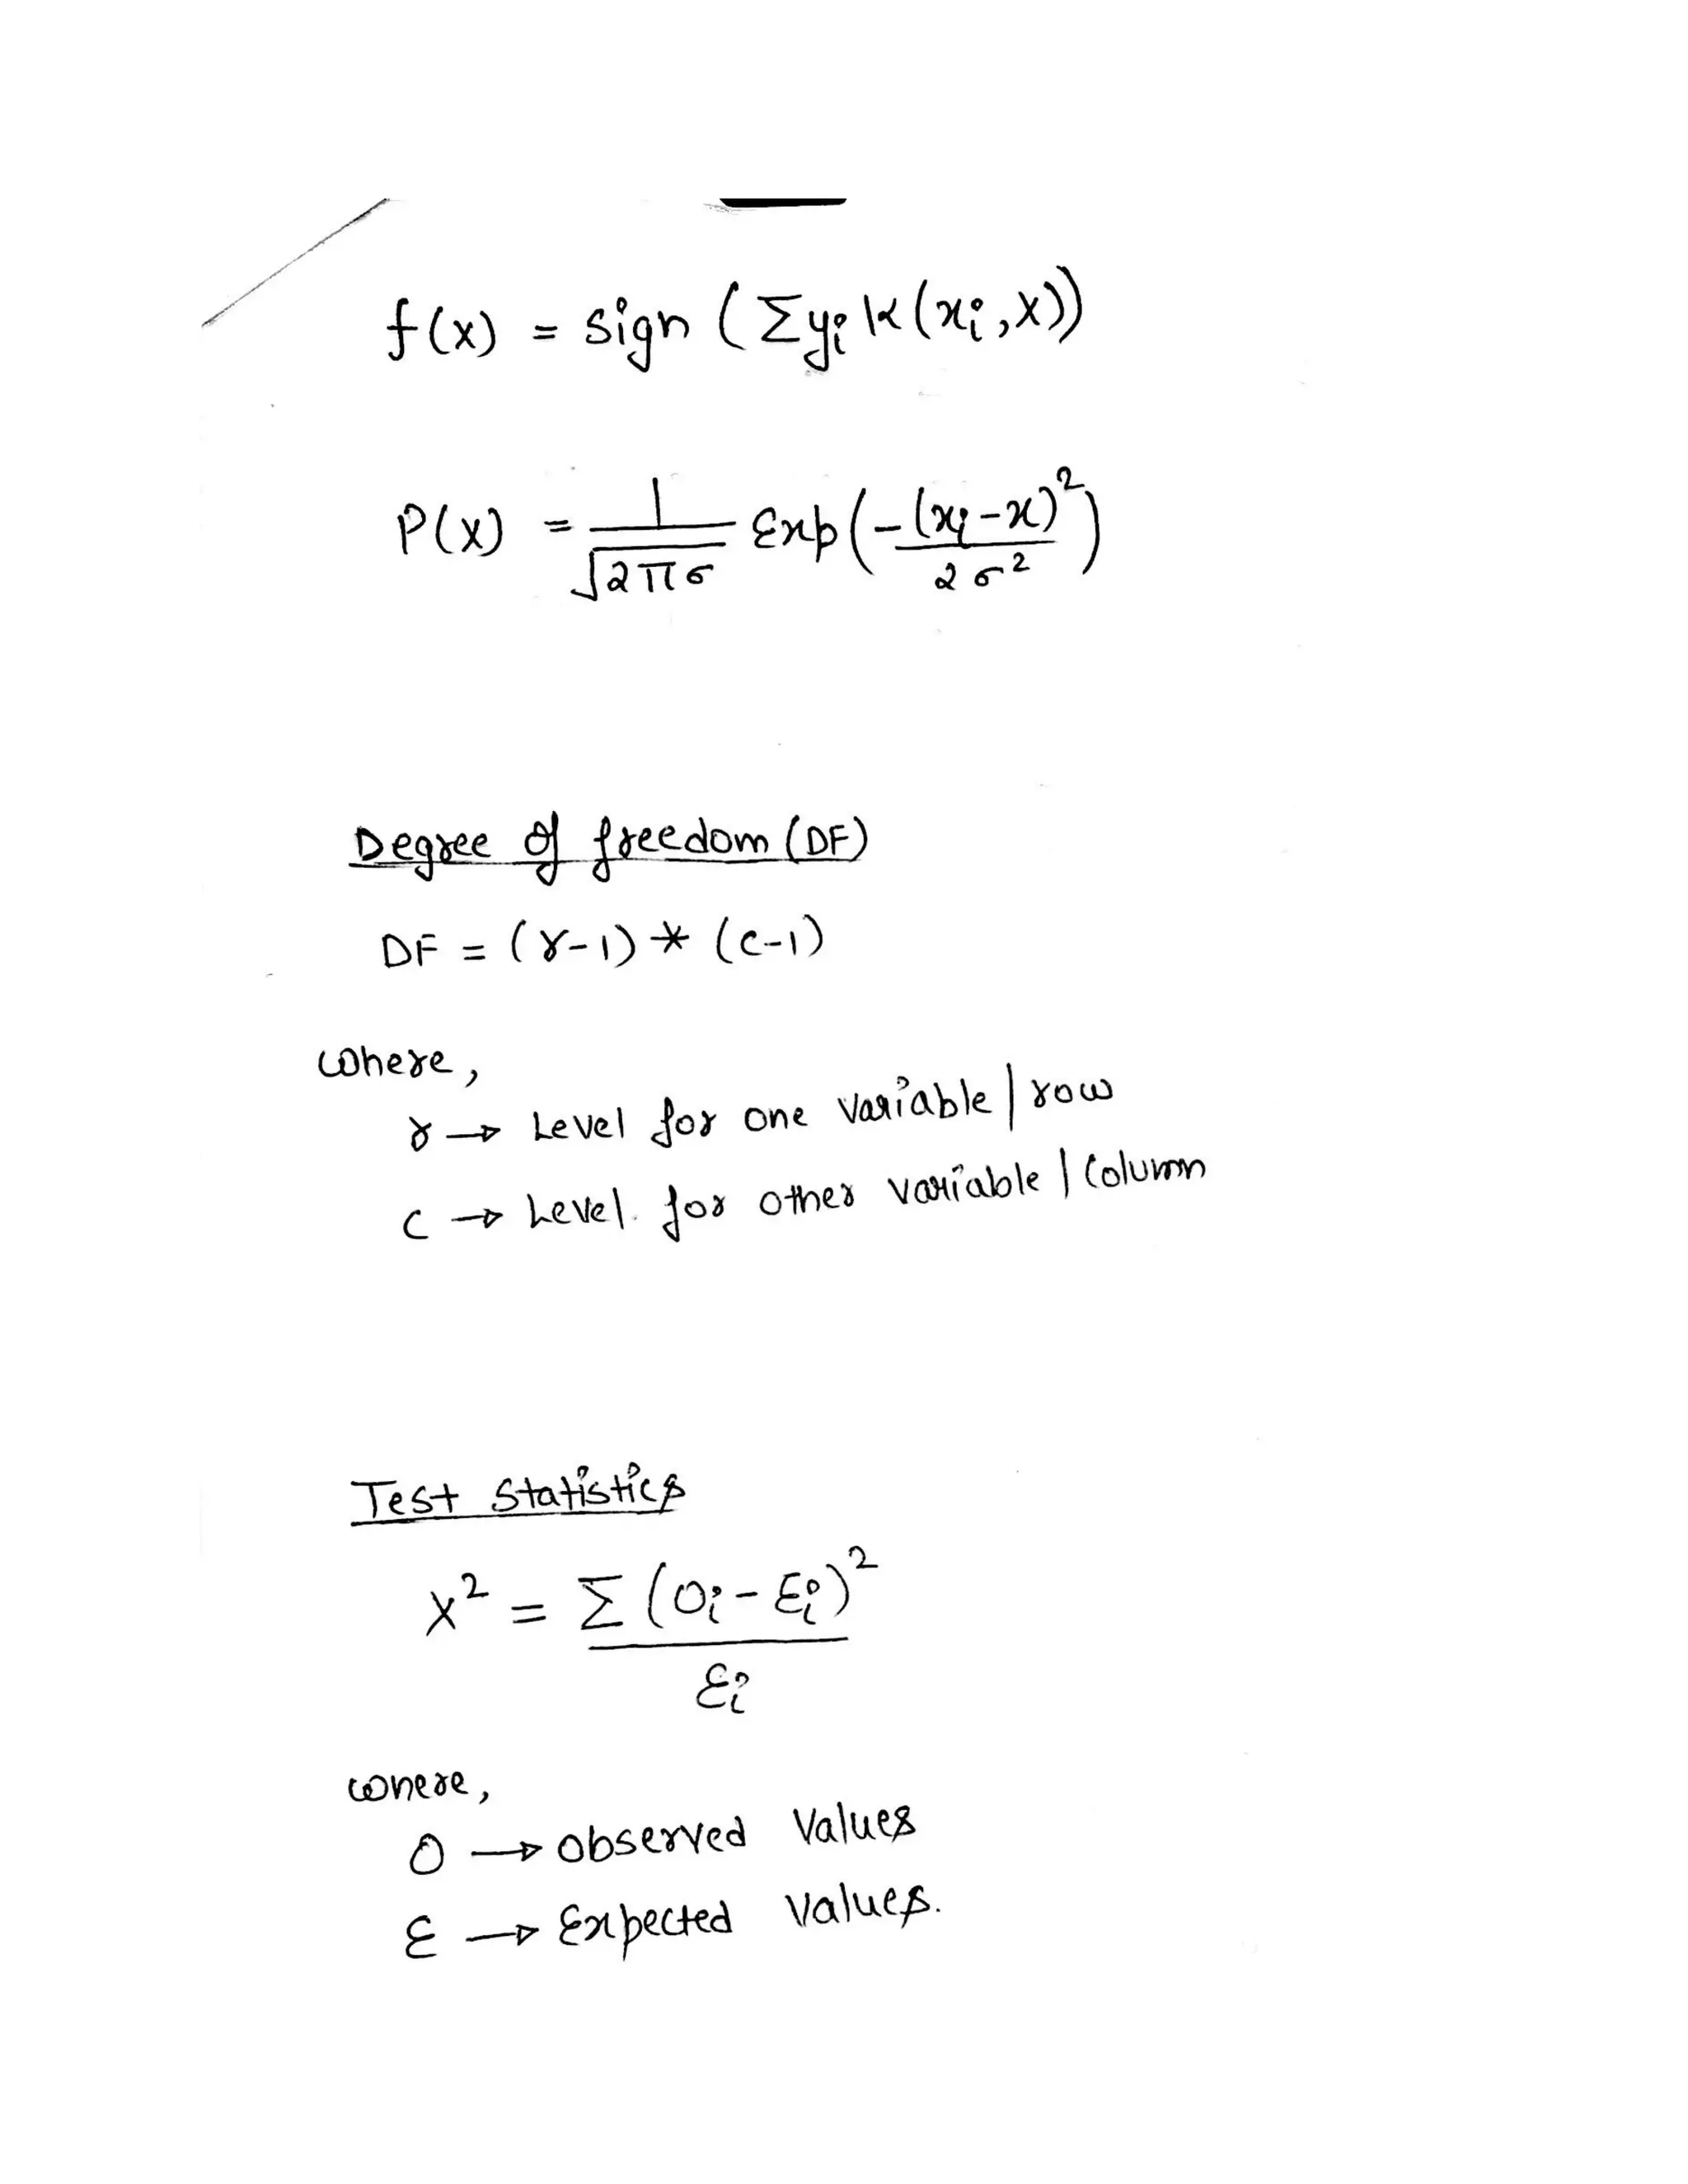 f(x) = sign (Σyᵢ k(xᵢ, x))
P(x) = 1/√2πσ Exp(-(xᵢ-x)²/2σ²)
Degree of freedom (DF)
DF = (r-1) * (c-1)
where,
r → Level for one variable | row
c → Level for other variable | Column
Test Statistics
X² = Σ (Oᵢ - Eᵢ)² / Eᵢ
where,
O → observed values
E → Expected values.